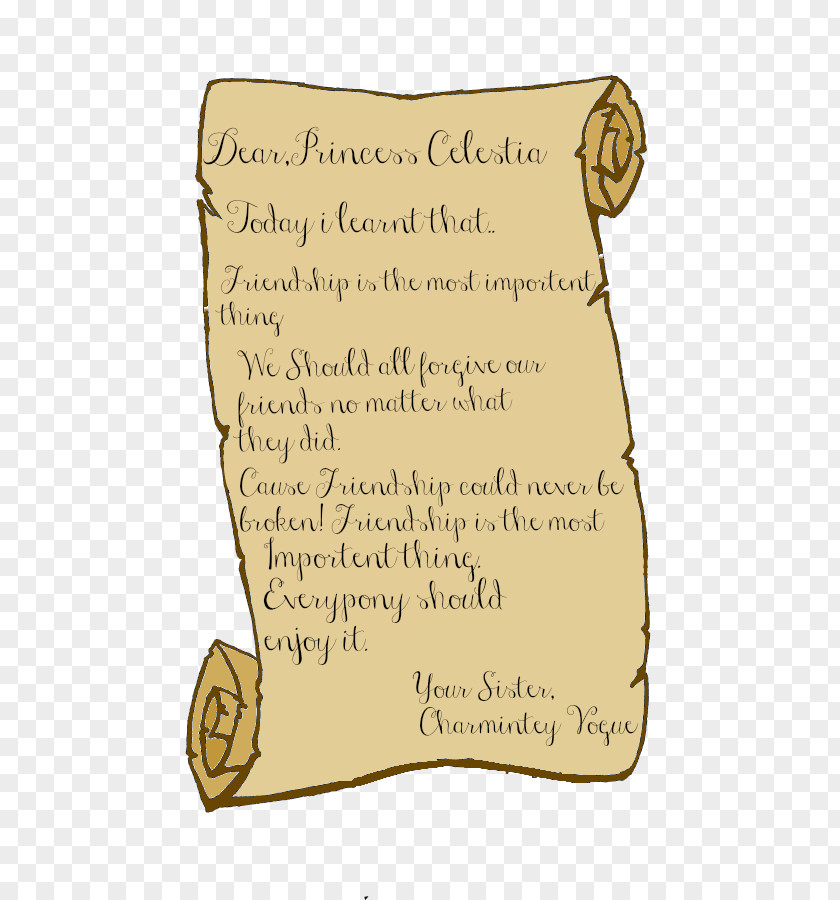 Dear,Princess Celestia
Today i learnt that..
Friendship is the most importent
thing
We Should all forgive our
friends no matter what
they did.
Cause Friendship could never be
broken! Friendship is the most
Importent thing.
Everypony should
enjoy it.
Your Sister,
Charmintey Vogue